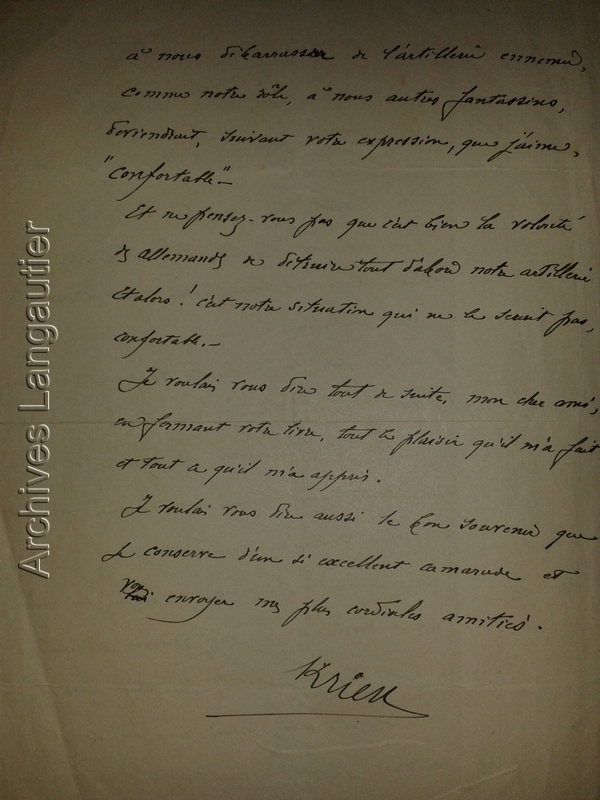 à nous débarrasser de l'artillerie ennemie,
comme notre rôle, à nous autres fantassins,
deviendrait, suivant votre expression, que j'aime,
"confortable" _
Et ne pensez-vous pas que c'est bien la volonté
des allemands de détruire tout d'abord notre artillerie
Et alors ! c'est notre situation qui ne le serait pas,
confortable. _
Je voulais vous dire tout de suite, mon cher ami,
en fermant votre livre, tout le plaisir qu'il m'a fait
et tout ce qu'il m'a appris.
Je voulais vous dire aussi le bon souvenir que
je conserve d'un si excellent camarade et
vous envoyer mes plus cordiales amitiés.
Archives Langautier